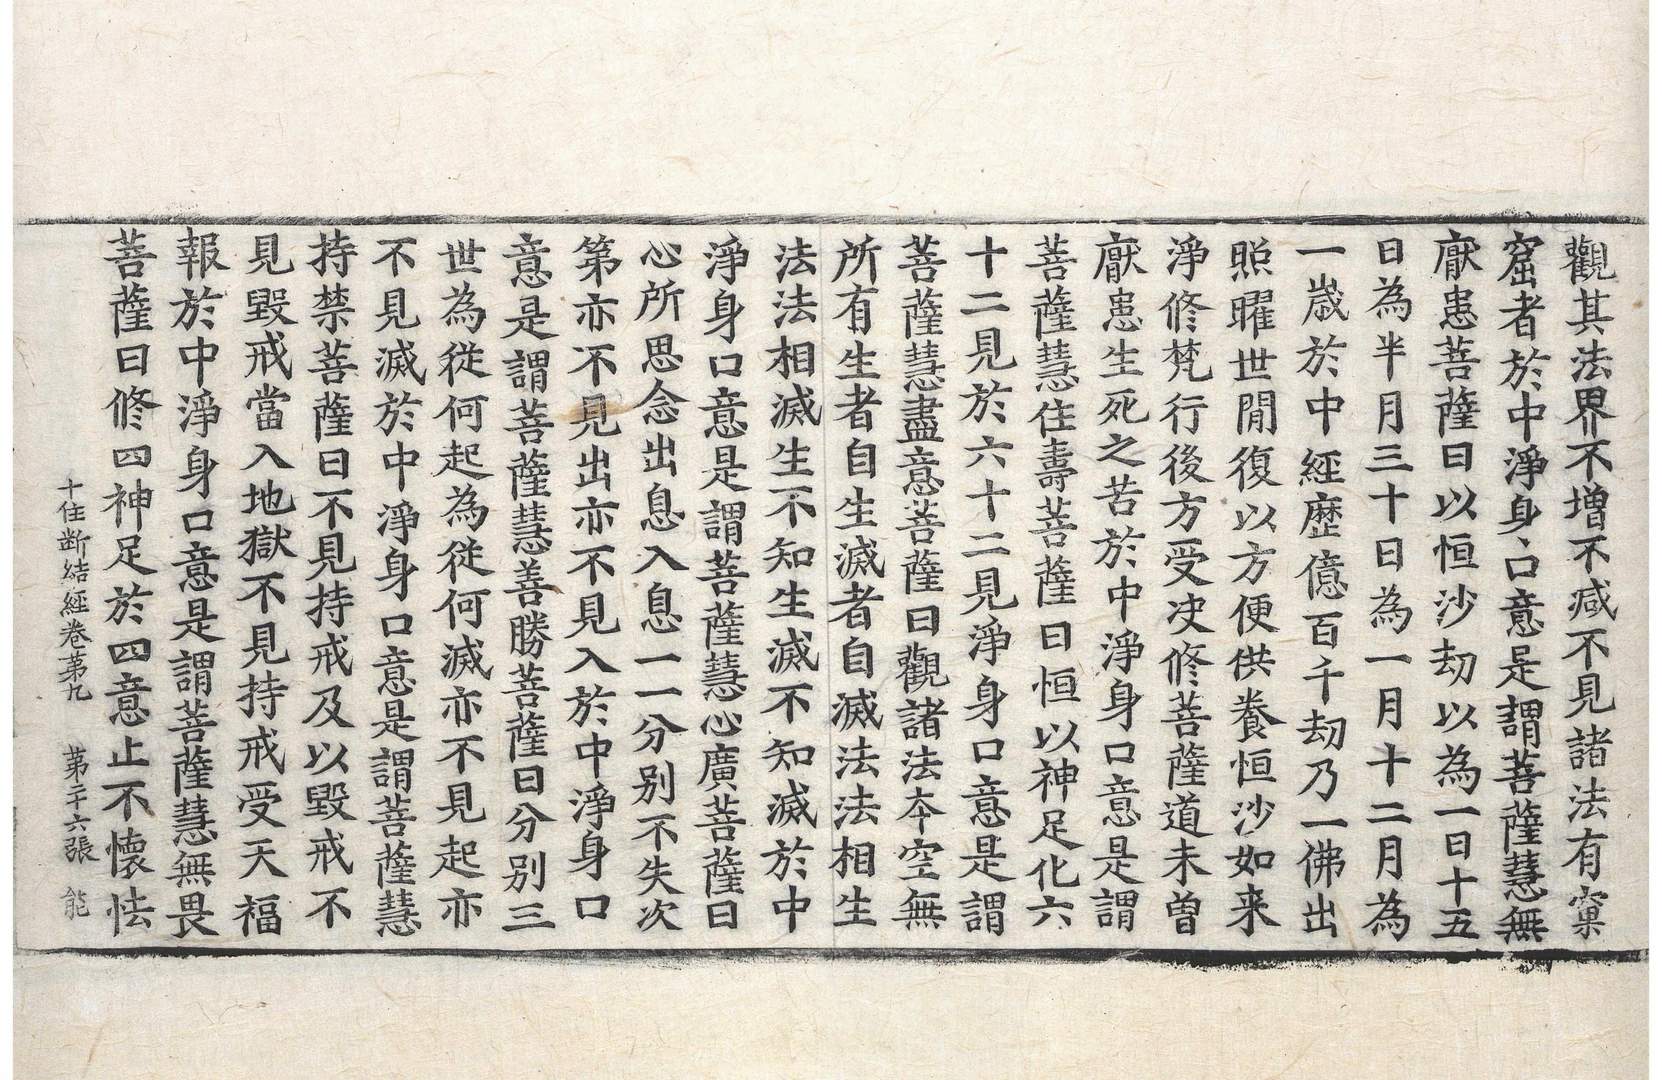 觀其法界不增不减不見諸法有窠
窟者於中淨身口意是謂菩薩慧無
厭患菩薩曰以恒沙劫以為一日十五
日為半月三十日為一月十二月為
一歲於中經歷億百千劫乃一佛出
照曜世閒復以方便供養恒沙如来
淨修梵行後方受决修菩薩道未曾
厭患生死之苦於中淨身口意是謂
菩薩慧住壽菩薩曰恒以神足化六
十二見於六十二見淨身口意是謂
菩薩慧盡意菩薩曰觀諸法本空無
所有生者自生滅者自滅法法相生
法法相滅生不知生滅不知滅於中
淨身口意是謂菩薩慧心廣菩薩曰
心所思念出息入息一一分別不失次
第亦不見出亦不見入於中淨身口
意是謂菩薩慧善勝菩薩曰分別三
世為從何起為從何滅亦不見起亦
不見滅於中淨身口意是謂菩薩慧
持禁菩薩曰不見持戒及以毀戒不
見毀戒當入地獄不見持戒受天福
報於中淨身口意是謂菩薩慧無畏
菩薩曰修四神足於四意止不懷怯
十住断結經卷第九 第二十六張 能